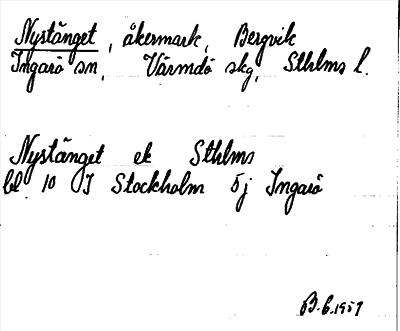 Nystänget, åkermark, Bergvik
Ingarö sn, Värmdö skg, Sthlms l.
Nystänget ek Sthlms
bl 10 I Stockholm öj Ingarö
B.G. 1959